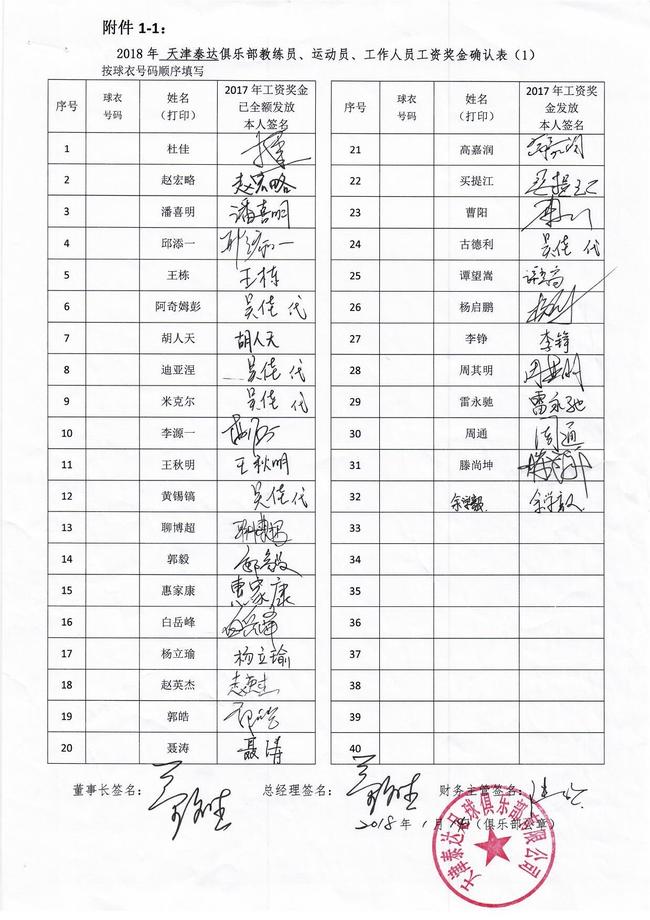 附件 1-1:
2018 年 天津泰达俱乐部教练员、运动员、工作人员工资奖金确认表（1）
按球衣号码顺序填写
序号 球衣号码 姓名（打印） 2017 年工资奖金已全额发放本人签名
1 杜佳
2 赵宏略 赵宏略
3 潘喜明 潘喜明
4 邱添一
5 王栋 王栋
6 阿奇姆彭 吴佳 代
7 胡人天 胡人天
8 迪亚涅 吴佳 代
9 米克尔 吴佳 代
10 李源一
11 王秋明 王秋明
12 黄锡镐 吴佳 代
13 聊博超
14 郭毅
15 惠家康 惠家康
16 白岳峰
17 杨立瑜 杨立瑜
18 赵英杰
19 郭皓
20 聂涛 聂涛
序号 球衣号码 姓名（打印） 2017 年工资奖金发放本人签名
21 高嘉润
22 买提江
23 曹阳
24 古德利 吴佳 代
25 谭望嵩
26 杨启鹏
27 李铮 李铮
28 周其明 周其明
29 雷永驰 雷永驰
30 周通 周通
31 滕尚坤
32 余学毅 余学毅
33
34
35
36
37
38
39
40
董事长签名： 总经理签名： 财务主管签名：
2018 年 1 月 （俱乐部公章）
泰达足球俱乐部有限公司